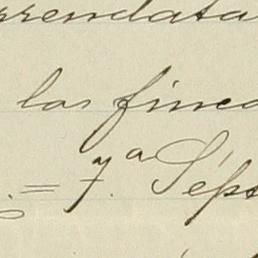 rrendata
las finca
= 7.ª Séps